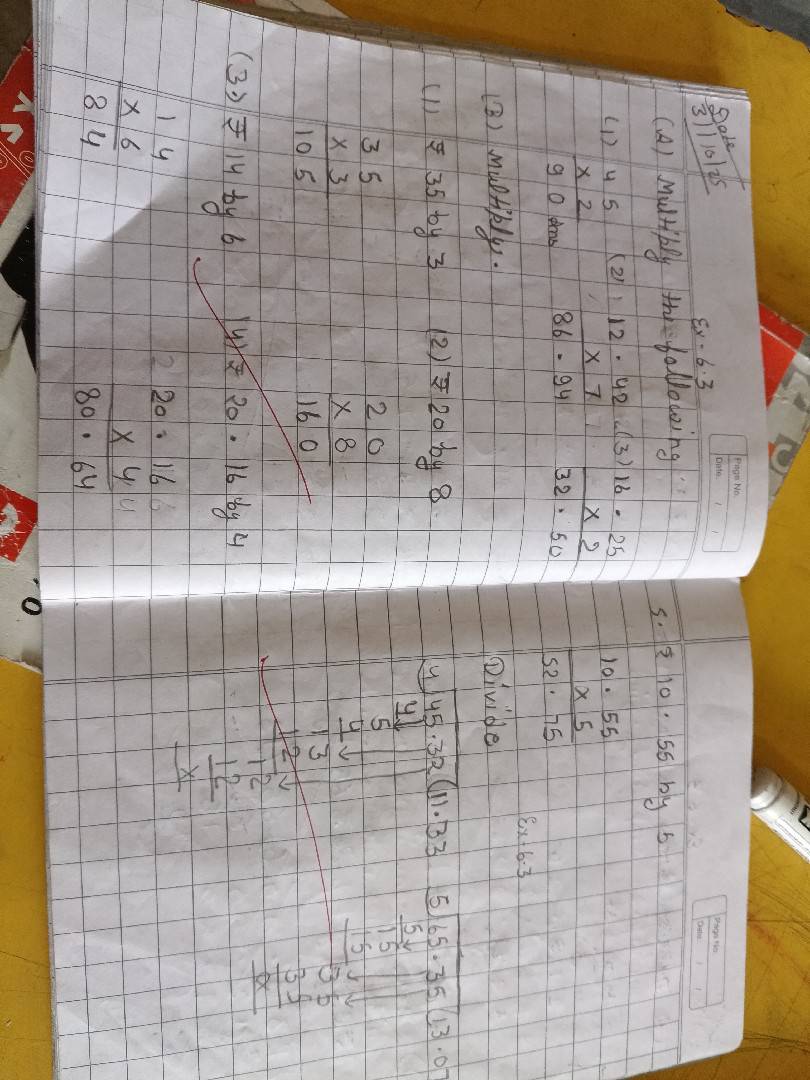 Date
31/10/25
Page No.
Date / /
Ex - 6.3
(A) Multiply the following
(1) 45 (2) 12.42 (3) 16.25
x 2 x 7 x 2
90 Ans 86.94 32.50
(B) Multiply.
(1) ₹ 35 by 3 (2) ₹ 20 by 8
35 20
x 3 x 8
105 160
(3) ₹ 14 by 6 (4) ₹ 20.16 by 4
14 20.16
x 6 x 4
84 80.64
Page No.
Date / /
5. ₹ 10.55 by 5
10.55
x 5
52.75
Ex - 6.3
Divide
4)45.32(11.33 5)65.35(13.07
4↓ 5↓
5 15
4↓ 15↓↓
13 35
12↓ 35
12 x
12
x